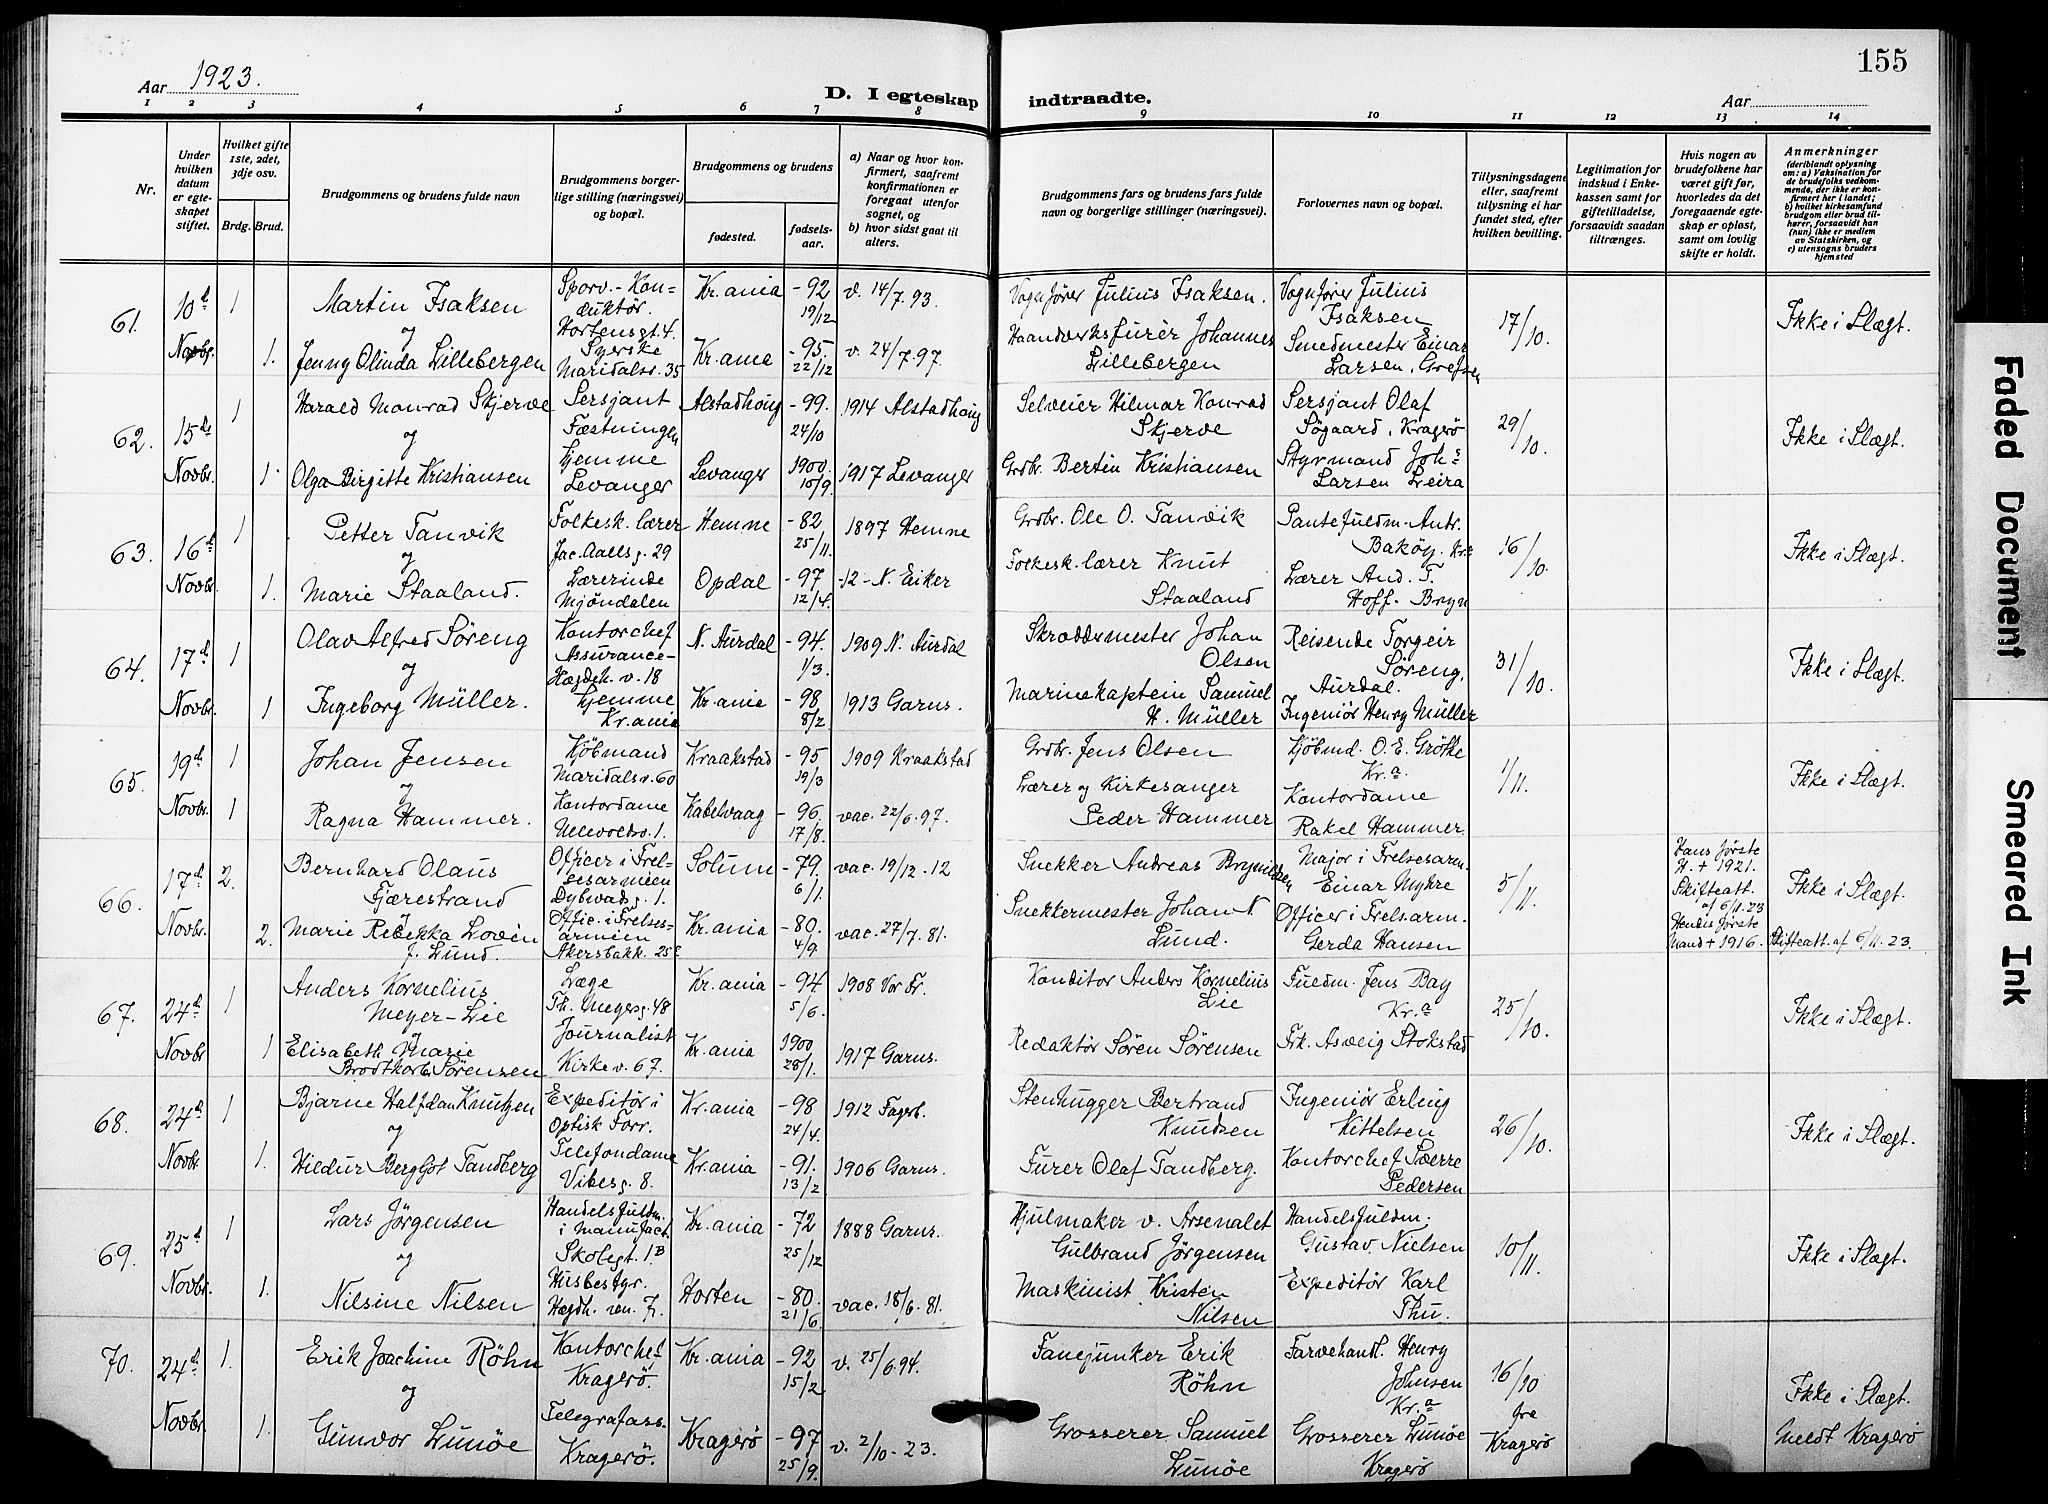 155
Aar 1923.
D. I egteskap indtraadte.
Aar
1 2 3 4 5 6 7 8 9 10 11 12 13 14
Nr.
Under hvilken datum er egteskapet stiftet.
Hvilket gifte 1ste, 2det, 3dje osv.
Brdg. Brud.
Brudgommens og brudens fulde navn
Brudgommens borgerlige stilling (næringsvei) og bopæl.
Brudgommens og brudens
fødested.
fødselsaar.
a) Naar og hvor konfirmert, saafremt konfirmationen er foregaat utenfor sognet, og
b) hvor sidst gaat til alters.
Brudgommens fars og brudens fars fulde navn og borgerlige stillinger (næringsvei).
Forlovernes navn og bopæl.
Tillysningsdagene eller, saafremt tillysning ei har fundet sted, efter hvilken bevilling.
Legitimation for indskud i Enkekassen samt for giftetilladelse, forsaavidt saadan tiltrænges.
Hvis nogen av brudefolkene har været gift før, hvorledes da det foregaaende egteskap er opløst, samt om lovlig skifte er holdt.
Anmerkninger
(deriblandt oplysning om: a) Vaksination for de brudefolks vedkommende, der ikke er konfirmert her i landet; b) hvilket kirkesamfund brudgom eller brud tilhører, forsaavidt han (hun) ikke er medlem av Statskirken, og c) utensogns bruders hjemsted
61. 10d Novbr. 1 Martin Isaksen Sporv.-Konduktør. Hortensgt. 4. Kr.ania -92 19/12 v. 14/7.93. Vognfører Julius Isaksen. Vognfører Julius Isaksen 17/10. Ikke i Slægt.
og
1. Jenny Olinda Lillebergen Syerske Maridalsv. 35 Kr.ania -95. 22/12 v. 24/7.97. Haandverksfurér Johannes Lillebergen Smedmester Einar Larsen, Grefsen
62. 15de Novbr. 1 Harald Monrad Skjerve Sersjant Fæstningen Alstadhoug -99. 24/10 1914 Alstadhoug Selveier Hilmar Konrad Skjerve Sersjant Olaf Søgaard, Kragerø 29/10. Ikke i Slægt.
og
1 Olga Birgitte Kristiansen Hjemme Levanger Levanger 1900 10/9. 1917 Levanger Grdbr. Bertin Kristiansen Styrmand Johs Larsen Leira
63. 16d Novbr. 1 Petter Tanvik Folkesk. lærer Jac. Aallsg. 29 Hemne -82 25/11. 1897 Hemne Grdbr. Ole O. Tanvik Pantefuldm. Antr. Bakøy. Kra 16/10. Ikke i Slægt.
og
1. Marie Staaland. Lærerinde Mjøndalen Opdal -97 12/4. -12- N. Eiker Folkesk. lærer Knut Staaland Lærer And. T. Hoff. Bryn
64. 17d Novbr. 1 Olav Alfred Søreng Kontorchef Assurance- Hægdeh. v. 18 N. Aurdal -94. 1/3. 1909 N. Aurdal Skræddermester Johan Olsen Reisende Torgeir Søreng, Aurdal. 31/10. Ikke i Slægt.
og
1 Ingeborg Müller. Hjemme Kr.ania Kr.ania -98 8/2 1913 Garns. Marinekaptein Samuel H. Müller Ingeniør Henry Müller
65. 19d Novbr. 1 Johan Jensen Kjøbmand Maridalsv. 60 Kraakstad -95 19/3 1909 Kraakstad Grdbr. Jens Olsen Kjøbmd. O. E. Grøtte Kr.a 1/11. Ikke i Slægt.
og
1 Ragna Hammer. Kontordame Ullevoldsv. 1. Kabelvaag -96 17/8. vac. 22/6.97. Lærer og Kirkesanger Peder Hammer Kontordame Rakel Hammer
66. 17d Novbr. 2. Bernhard Olaus Fjærestrand Officer i Frelsesarmeen Dybwadsg. 1. Solum -79. 6/1. vac. 19/12.12 Snekker Andreas Brynildsen Major i Frelsesarm. Einar Myhre 5/11. Hans første H. + 1921. Skifteatt. af 6/11.23 Ikke i Slægt.
2. Marie Rebekka Lovén f. Lund. Offic. i Frelsesarmeen Akersbakk. 25c Kr.ania -80. 4/9 vac. 27/7.81. Snekkermester Johan N. Lund. Officer i Frelsarm. Gerda Hansen Hendes første Mand + 1916. Skifteatt. af 6/11.23.
67. 24d Novbr 1 Anders Kornelius Meyer-Lie Læge Th. Meyersg. 48 Kr.ania -94 5/6. 1908 Vor Fr. Konditor Anders Kornelius Lie Fuldm. Jens Bay Kr.a 25/10. Ikke i Slægt.
og
1 Elisabeth Marie Brodtkorb Sørensen Journalist Kirkev. 67. Kr.ania 1900 28/1. 1917 Garns. Redaktør Søren Sørensen Frk. Asveig Stokstad
68. 24d Novbr. 1 Bjarne Halfdan Knutzen Expeditør i Optisk Forr. Kr.ania -98 24/4. 1912 Fagerb. Stenhugger Bertrand Knudsen Ingeniør Erling Kittelsen 26/10. Ikke i Slægt.
og
1. Hildur Bergljot Tandberg Telefondame Vibesg. 8. Kr.ania -91. 13/2 1906 Garns. Furer Olaf Tandberg. Kontorchef Sverre Pedersen
69. 25d Novbr. 1 Lars Jörgensen Handelsfuldm. i Manufact. Skolegt. 1B Kr.ania -72 25/12 1888 Garns. Hjulmaker v. Arsenalet Gulbrand Jörgensen Handelsfuldm. Gustav Nielsen 10/11. Ikke i Slægt.
og
1. Nilsine Nilsen Husbestyr. Hægdh. ven. 7. Horten -80. 21/6. vac. 18/6.81. Maskinist Kristen Nilsen Expeditör Karl Thu.
70. 24d Novbr. 1. Erik Joachim Röhn Kontorchef Kragerö. Kr.ania -92 15/2 v. 25/6.94. Fanejunker Erik Röhn Farvehandl. Henry Johnsen Kr.a 16/10 fra Kragerö Ikke i Slægt.
og
1. Gunvor Lunöe Telegrafass. Kragerö. Kragerö -97 25/9. v. 2/10-23. Grosserer Samuel Lunöe Grosserer Lunöe Kragerö meldt Kragerö
Faded Document
Smeared Ink